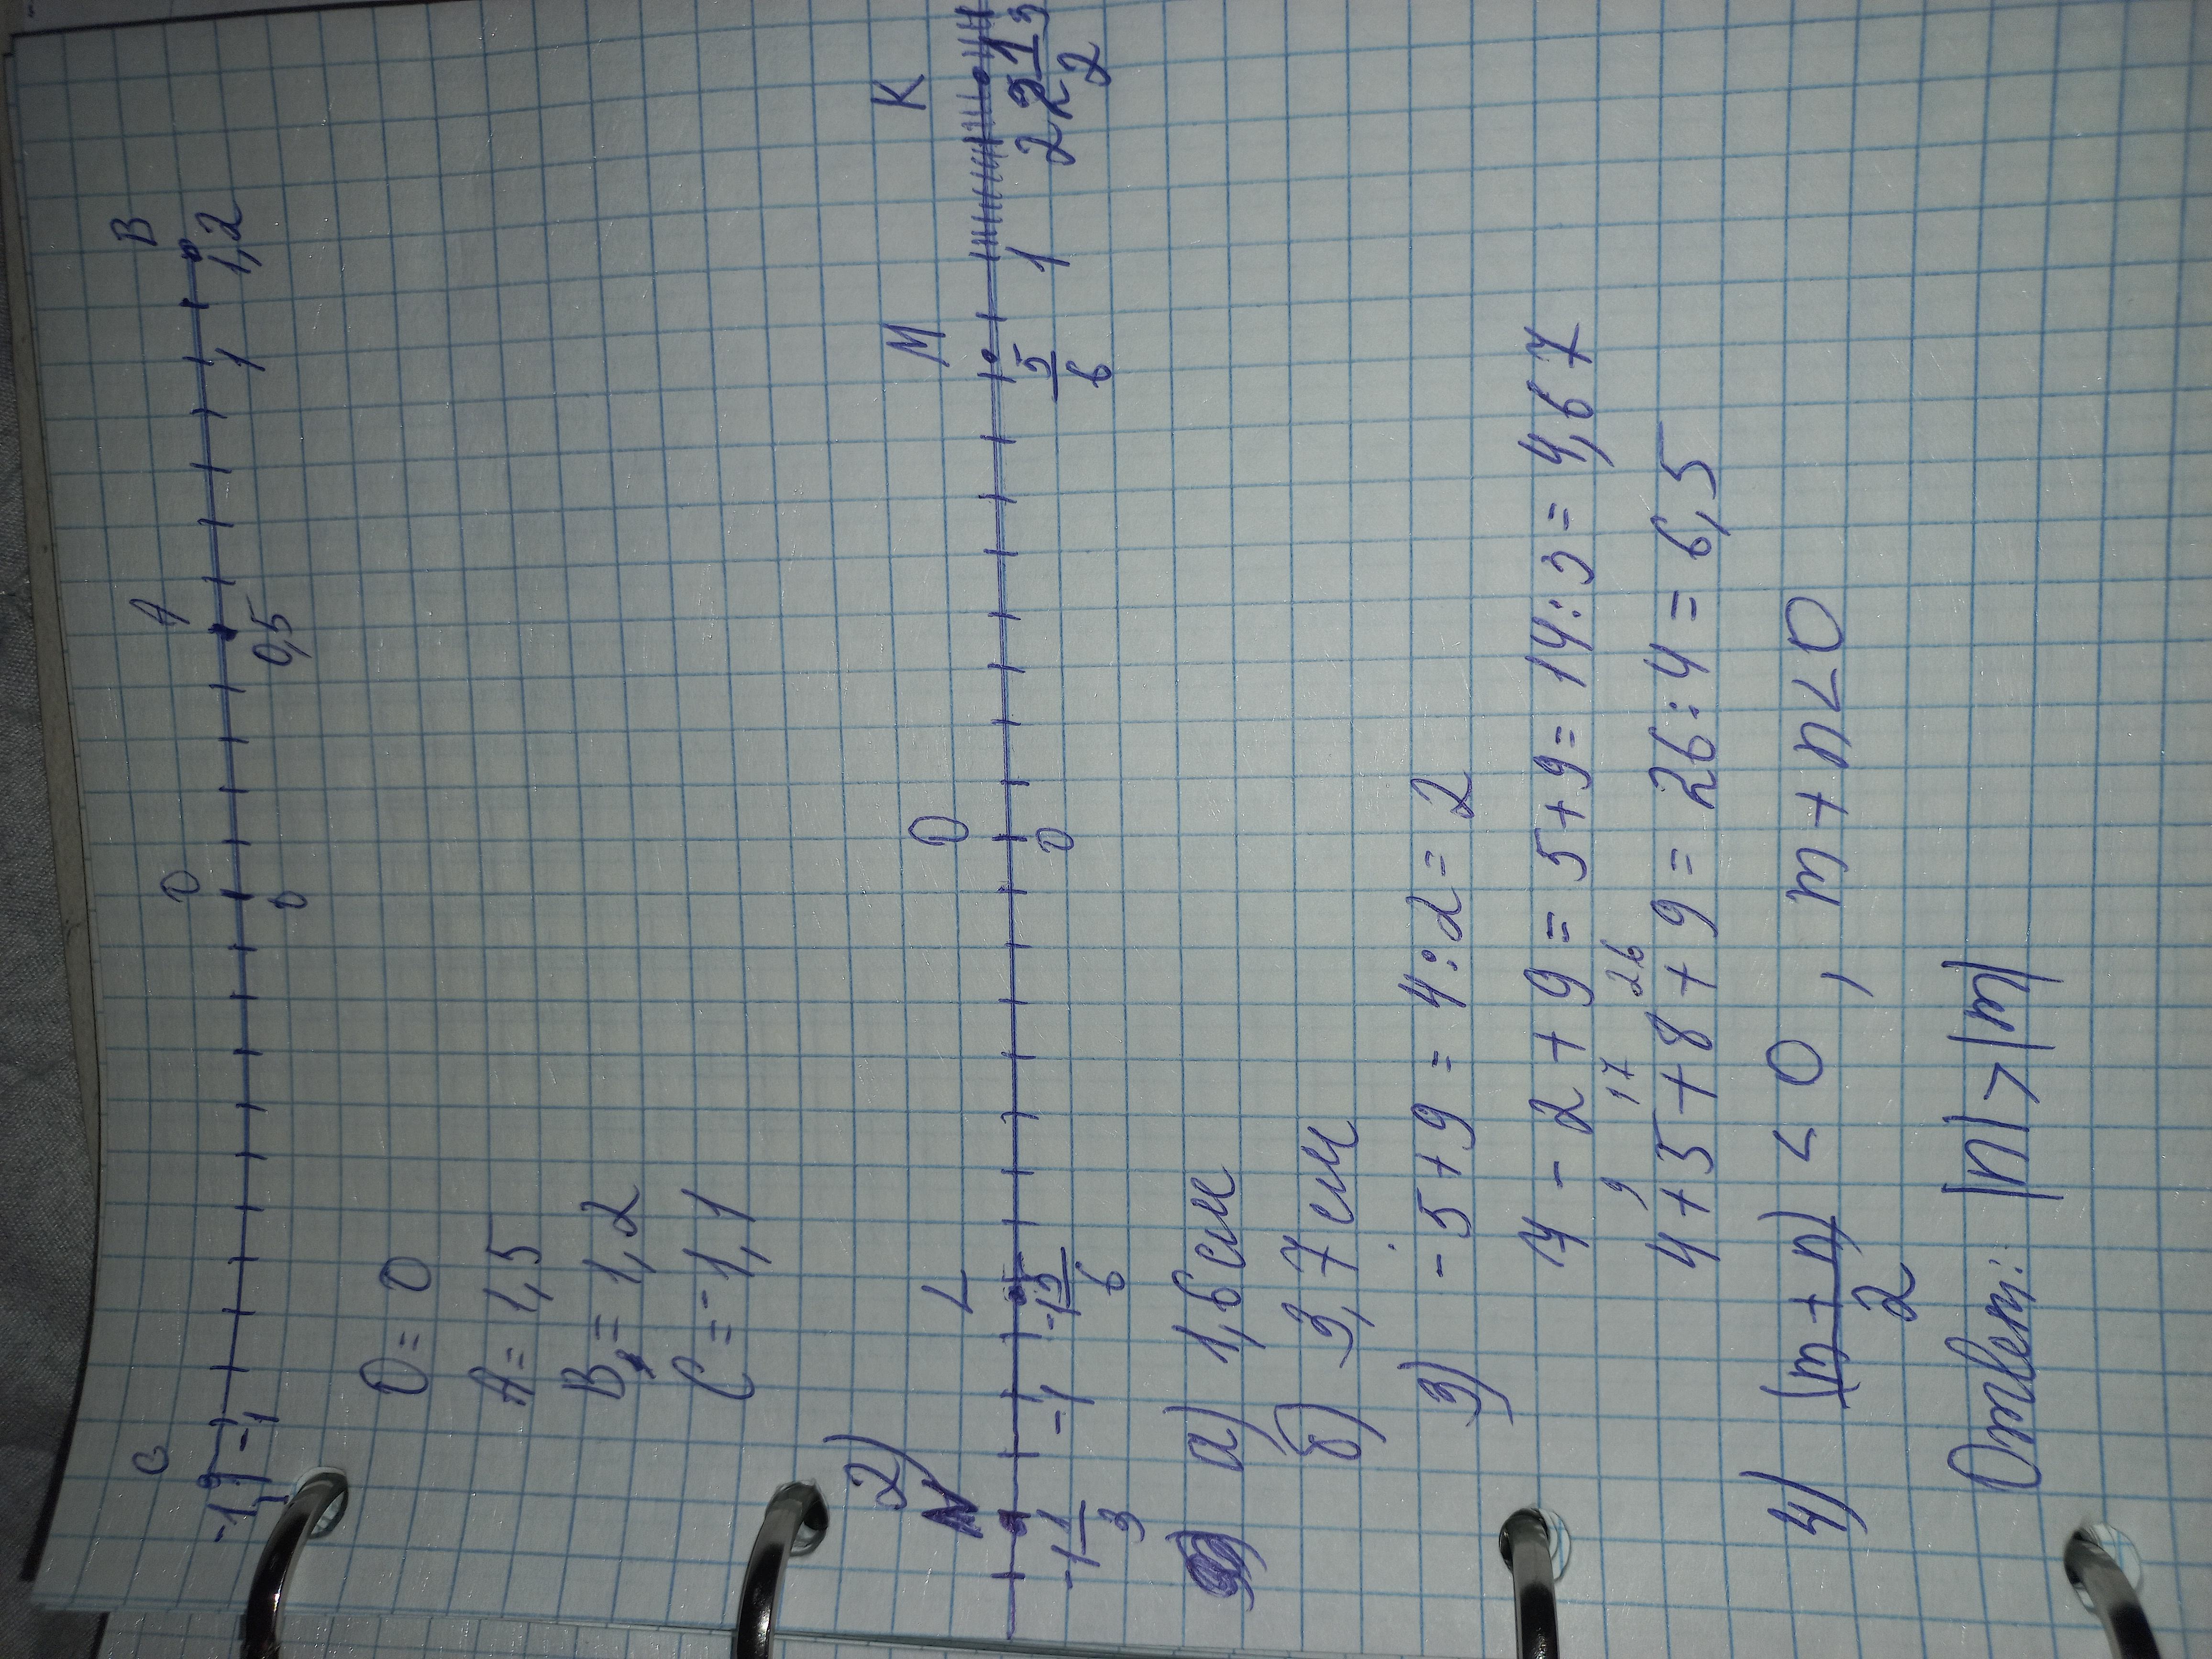 C O A B
-1,1 -1 0 0,5 1 1,2
O = 0
A = 1,5
B = 1,2
C = -1,1
2)
N L O M K
-1 1/3 -1 -5/6 0 5/6 1 2 1/2
а) 1,6 см
б) 3,7 см
3) -5 + 9 = 4 : 2 = 2
14 - 2 + 9 = 5 + 9 = 14 : 3 = 4,67
9 17 26
4 + 5 + 8 + 9 = 26 : 4 = 6,5
4) (m + n)/2 < 0 , m + n < 0
Ответ: |n| > |m|